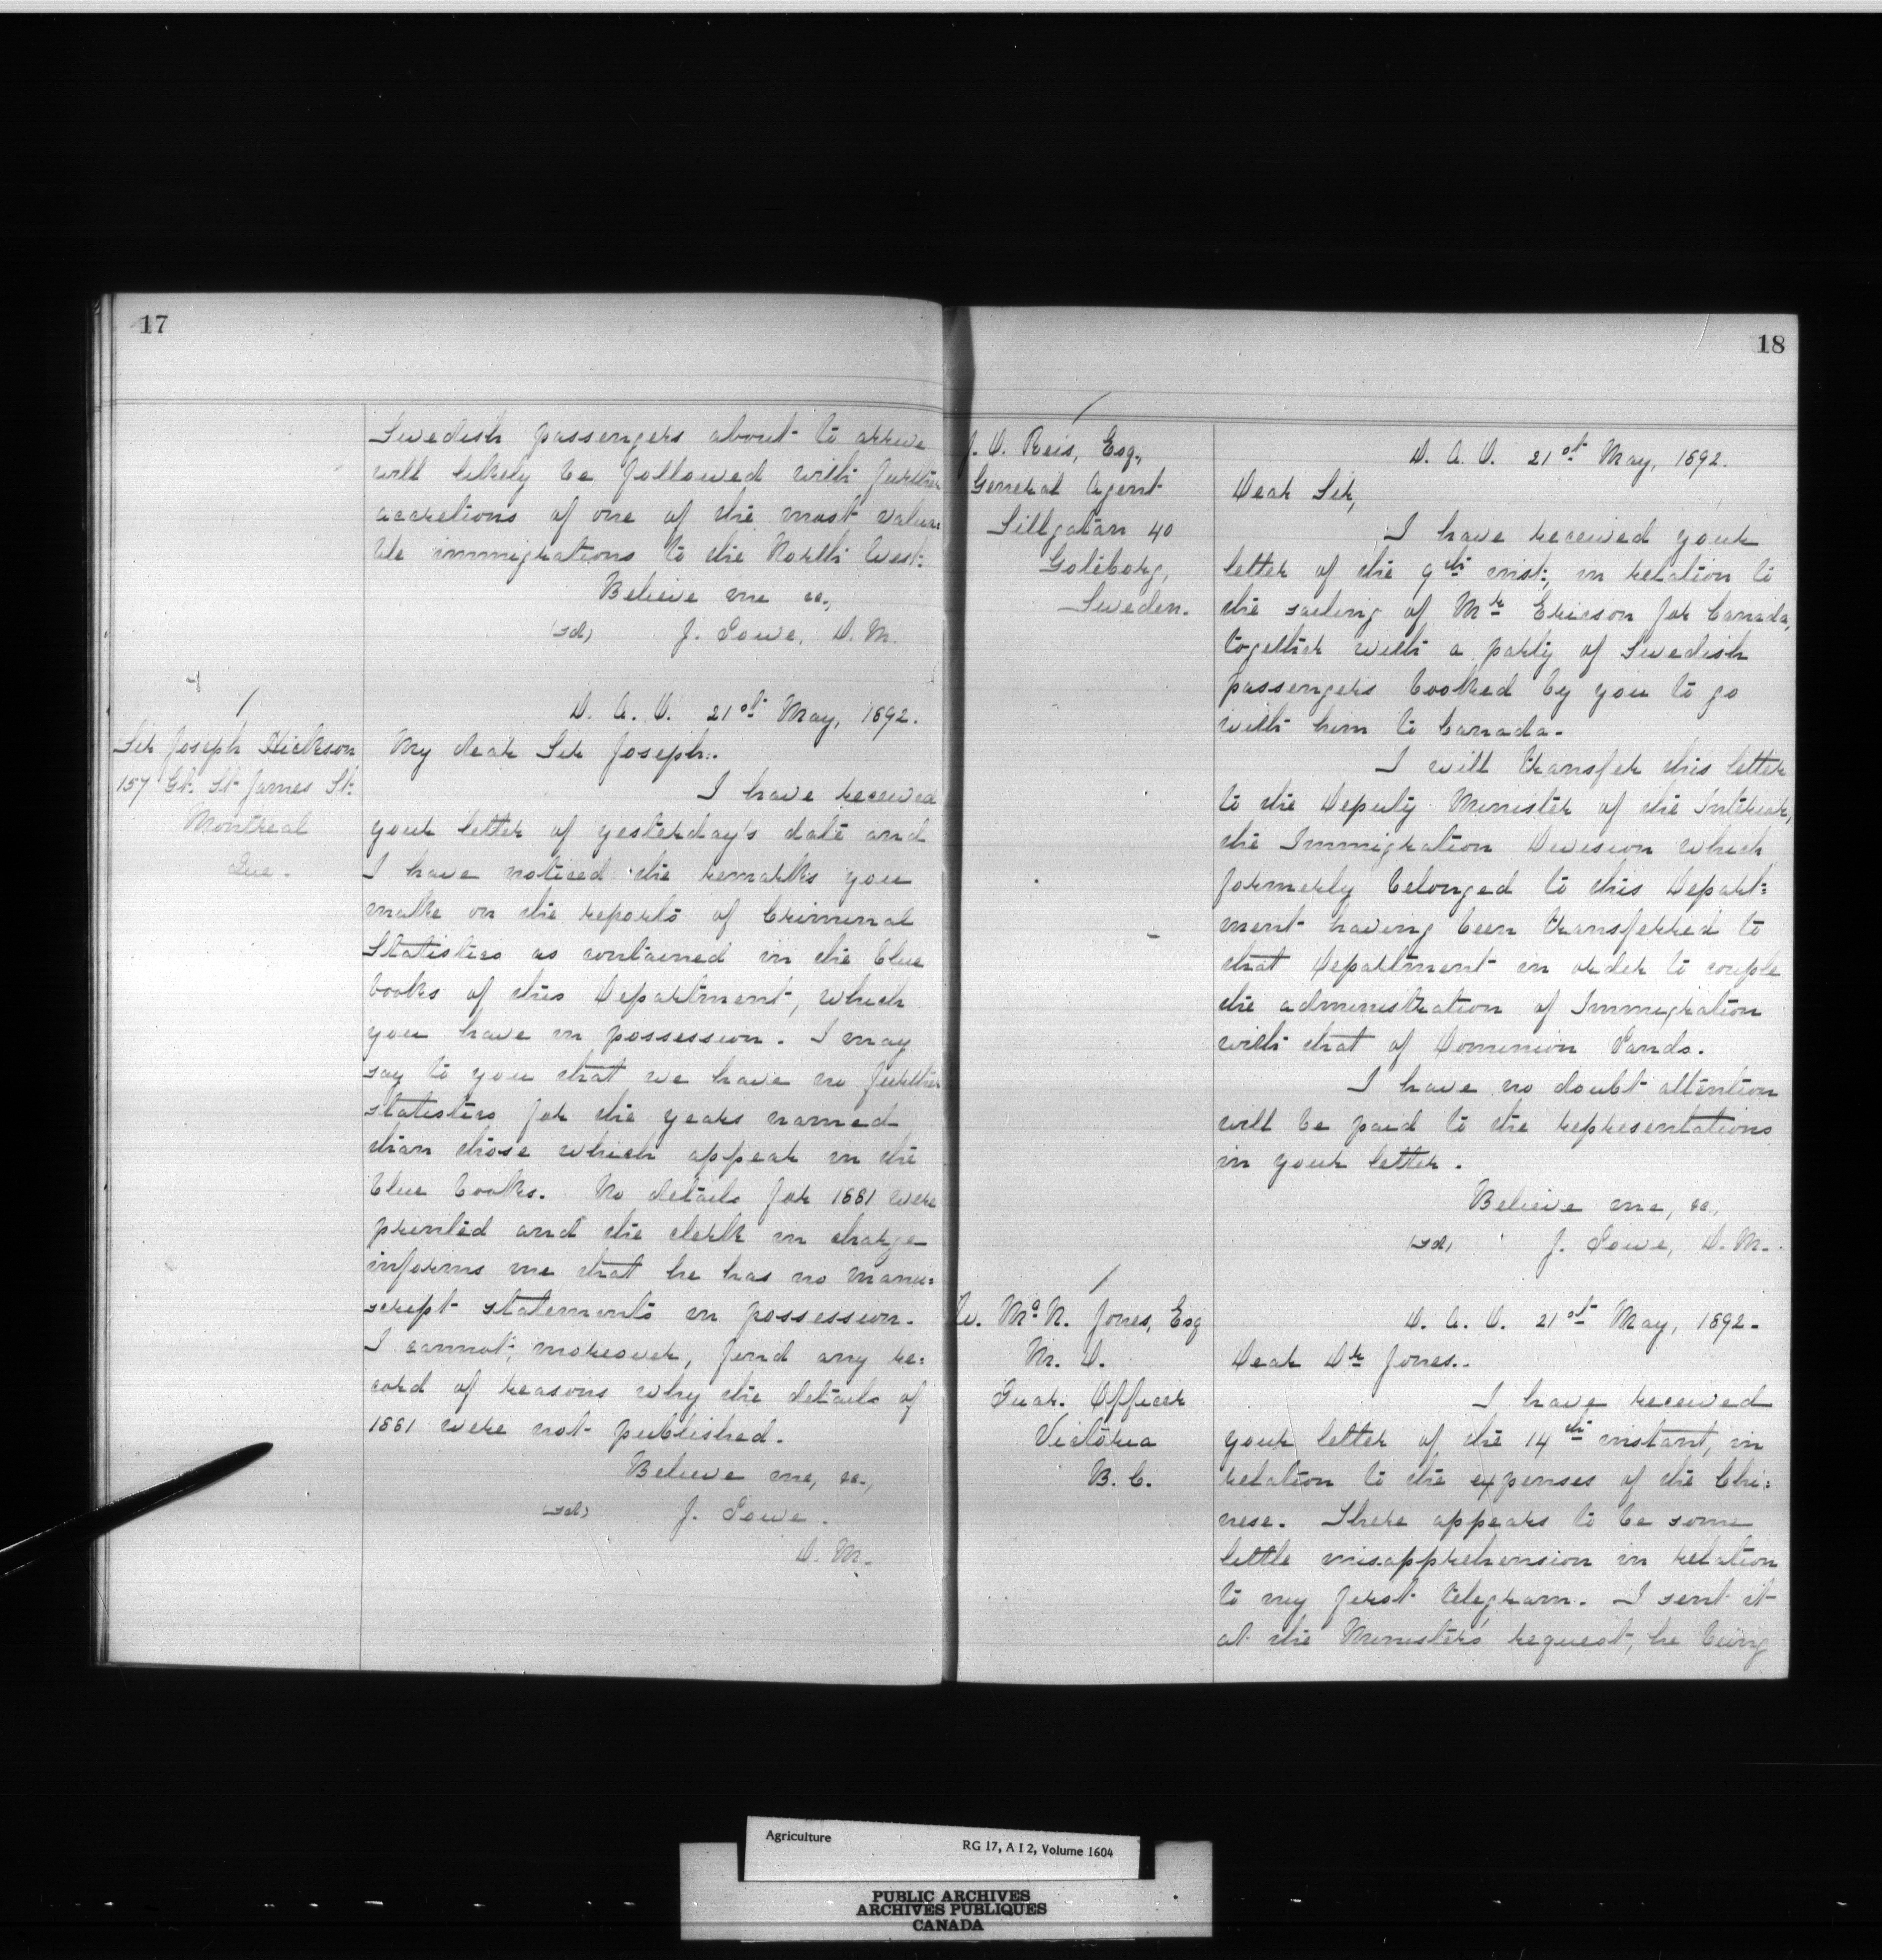 17
Swedish passengers about to arrive
will likely be followed with further
accretions of one of the most valua=
ble immigrations to the North West.
Believe me &c.,
(sd) J. Lowe, D. M.
D. A. O. 21st May, 1892.
Sir Joseph Hickson
157 Gt. St. James St.
Montreal
Que.
My dear Sir Joseph:.
I have received
your letter of yesterday's date and
I have noticed the remarks you
make on the reports of Criminal
Statistics as contained in the blue
books of this Department, which
you have in possession. I may
say to you that we have no further
statistics for the years named
than those which appear in the
blue books. No details for 1881 were
printed and the clerk in charge
informs me that he has no manu=
script statements in possession.
I cannot, moreover, find any re=
cord of reasons why the details of
1881 were not published.
Believe me, &c.,
(sd) J. Lowe.
D. M.
18
J. O. Reis, Esq.,
General Agent
Sillgatan 40
Goteborg,
Sweden.
D. A. O. 21st May, 1892.
Dear Sir,
I have received your
letter of the 9th inst., in relation to
the sailing of Mr Ericson for Canada,
together with a party of Swedish
passengers booked by you to go
with him to Canada.
I will transfer this letter
to the Deputy Minister of the Interior,
the Immigration Division which
formerly belonged to this Depart=
ment having been transferred to
that Department in order to couple
the administration of Immigration
with that of Dominion Lands.
I have no doubt attention
will be paid to the representations
in your letter.
Believe me, &c.,
(sd) J. Lowe, D. M.
W. McN. Jones, Esq
M. D.
Quar. Officer
Victoria
B. C.
D. A. O. 21st May, 1892.
Dear Dr Jones..
I have received
your letter of the 14th instant, in
relation to the expenses of the Chi=
nese. There appears to be some
little misapprehension in relation
to my first telegram. I sent it
at the Minister's request, he being
Agriculture
RG 17, A I 2, Volume 1604
PUBLIC ARCHIVES
ARCHIVES PUBLIQUES
CANADA